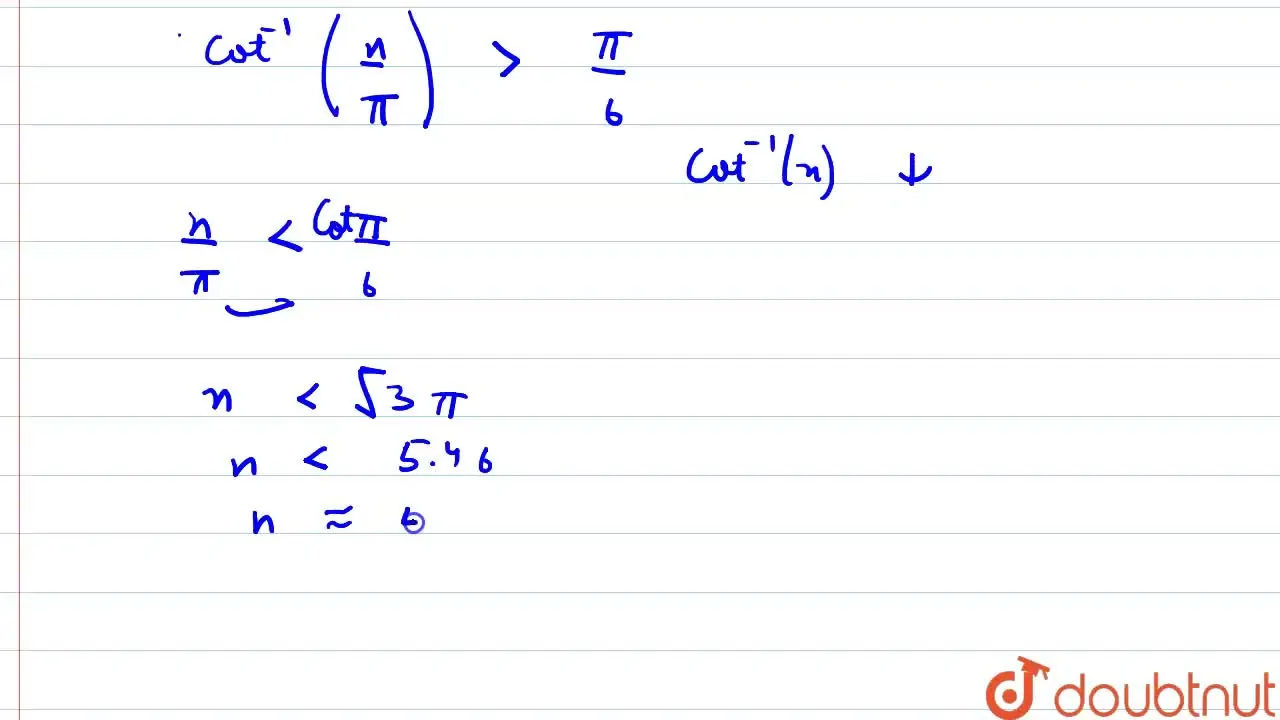 Cot⁻¹ (n/π) > π/6
Cot⁻¹(x) ↓
n/π < Cot π/6
n < √3 π
n < 5.46
n ≈
doubtnut